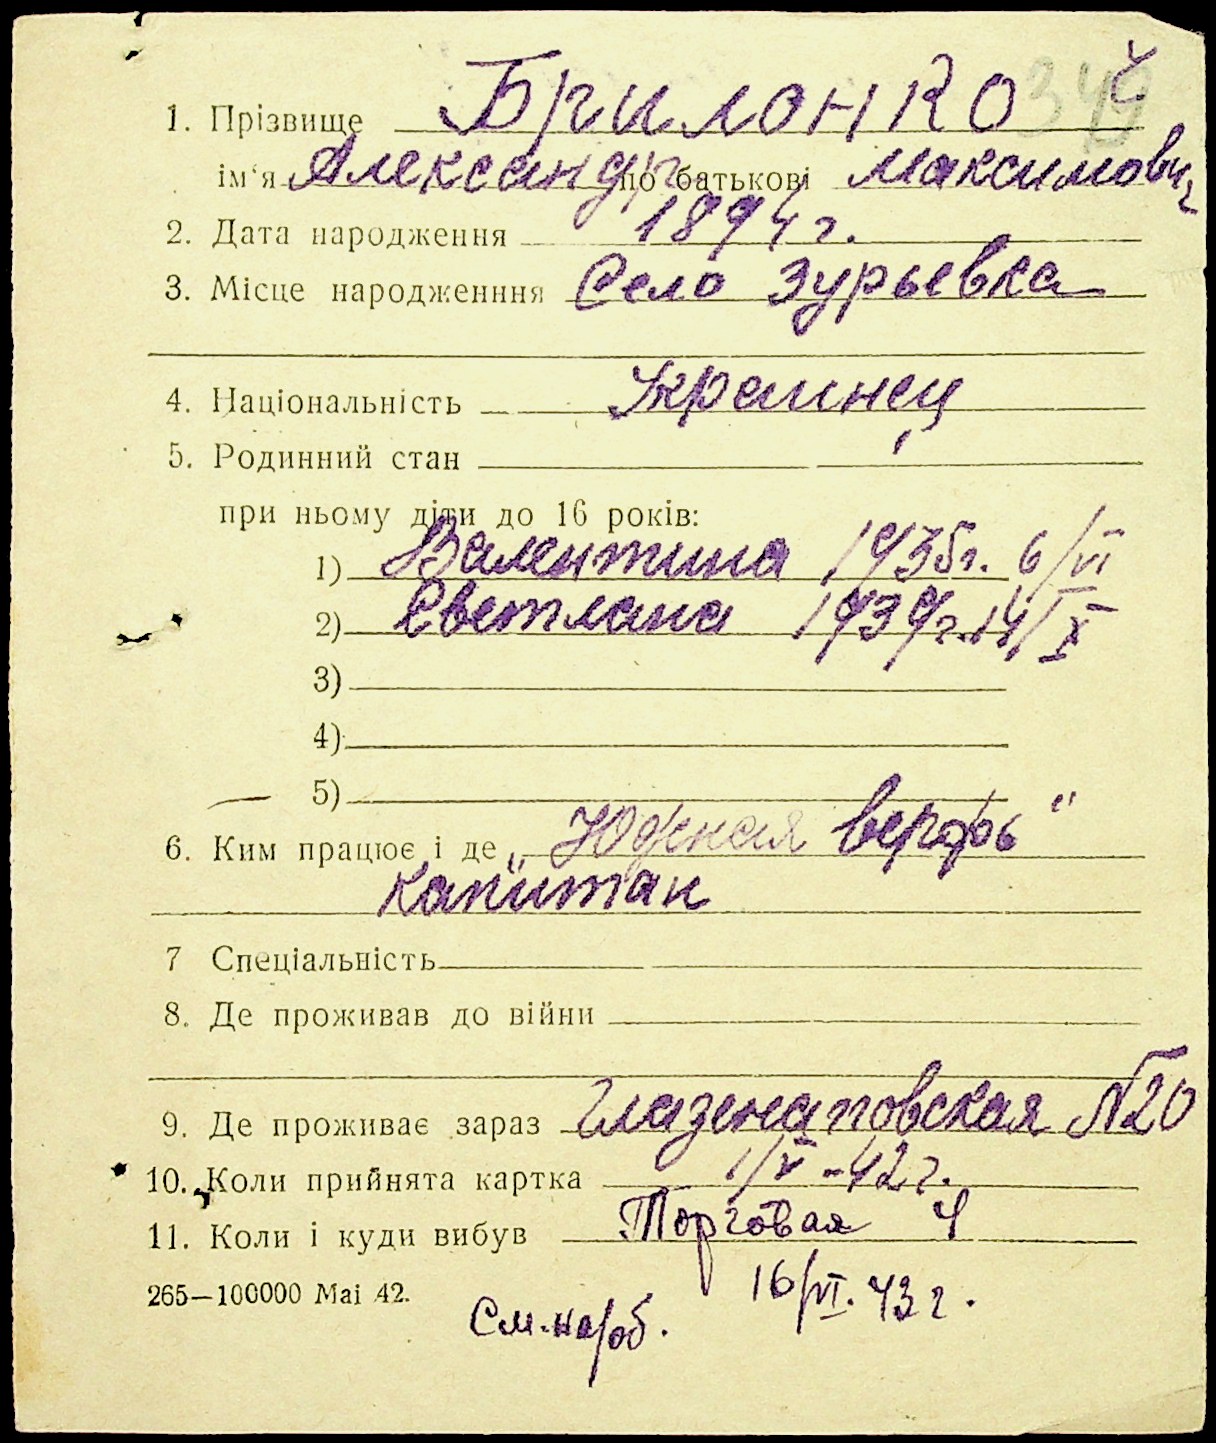 349 Č
1. Прізвище Брилонко
ім'я Александр по батькові Максимович
2. Дата народження 1894 г.
3. Місце народженння Село Зурьевка
4. Національність Украинец
5. Родинний стан
при ньому діти до 16 років:
1) Валентина 1935г. 6/VI
2) Светлана 1939г. 14/IX
3)
4)
5)
6. Ким працює і де „Южная верфь"
капитан
7 Спеціальність
8. Де проживав до війни
9. Де проживає зараз Глазенаповская №20
10. Коли прийнята картка 1/V-42 г.
11. Коли і куди вибув Торговая 4
265—100000 Маі 42. 16/VI. 43 г.
См. на/об.